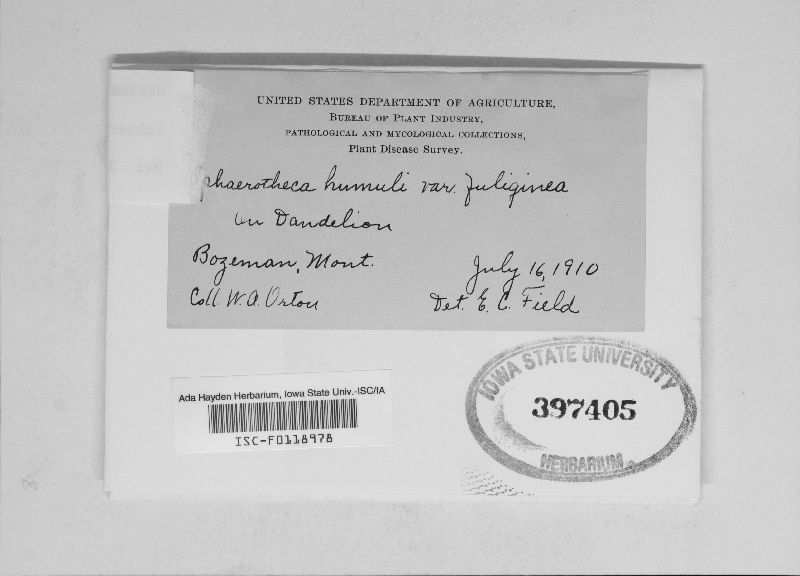 UNITED STATES DEPARTMENT OF AGRICULTURE,
BUREAU OF PLANT INDUSTRY,
PATHOLOGICAL AND MYCOLOGICAL COLLECTIONS,
Plant Disease Survey.
Sphaerotheca humuli var. fuliginea
on Dandelion
Bozeman, Mont. July 16, 1910
Coll. W. A. Orton Det. E. C. Field
Ada Hayden Herbarium, Iowa State Univ.-ISC/IA
ISC-F0118978
IOWA STATE UNIVERSITY
397405
HERBARIUM